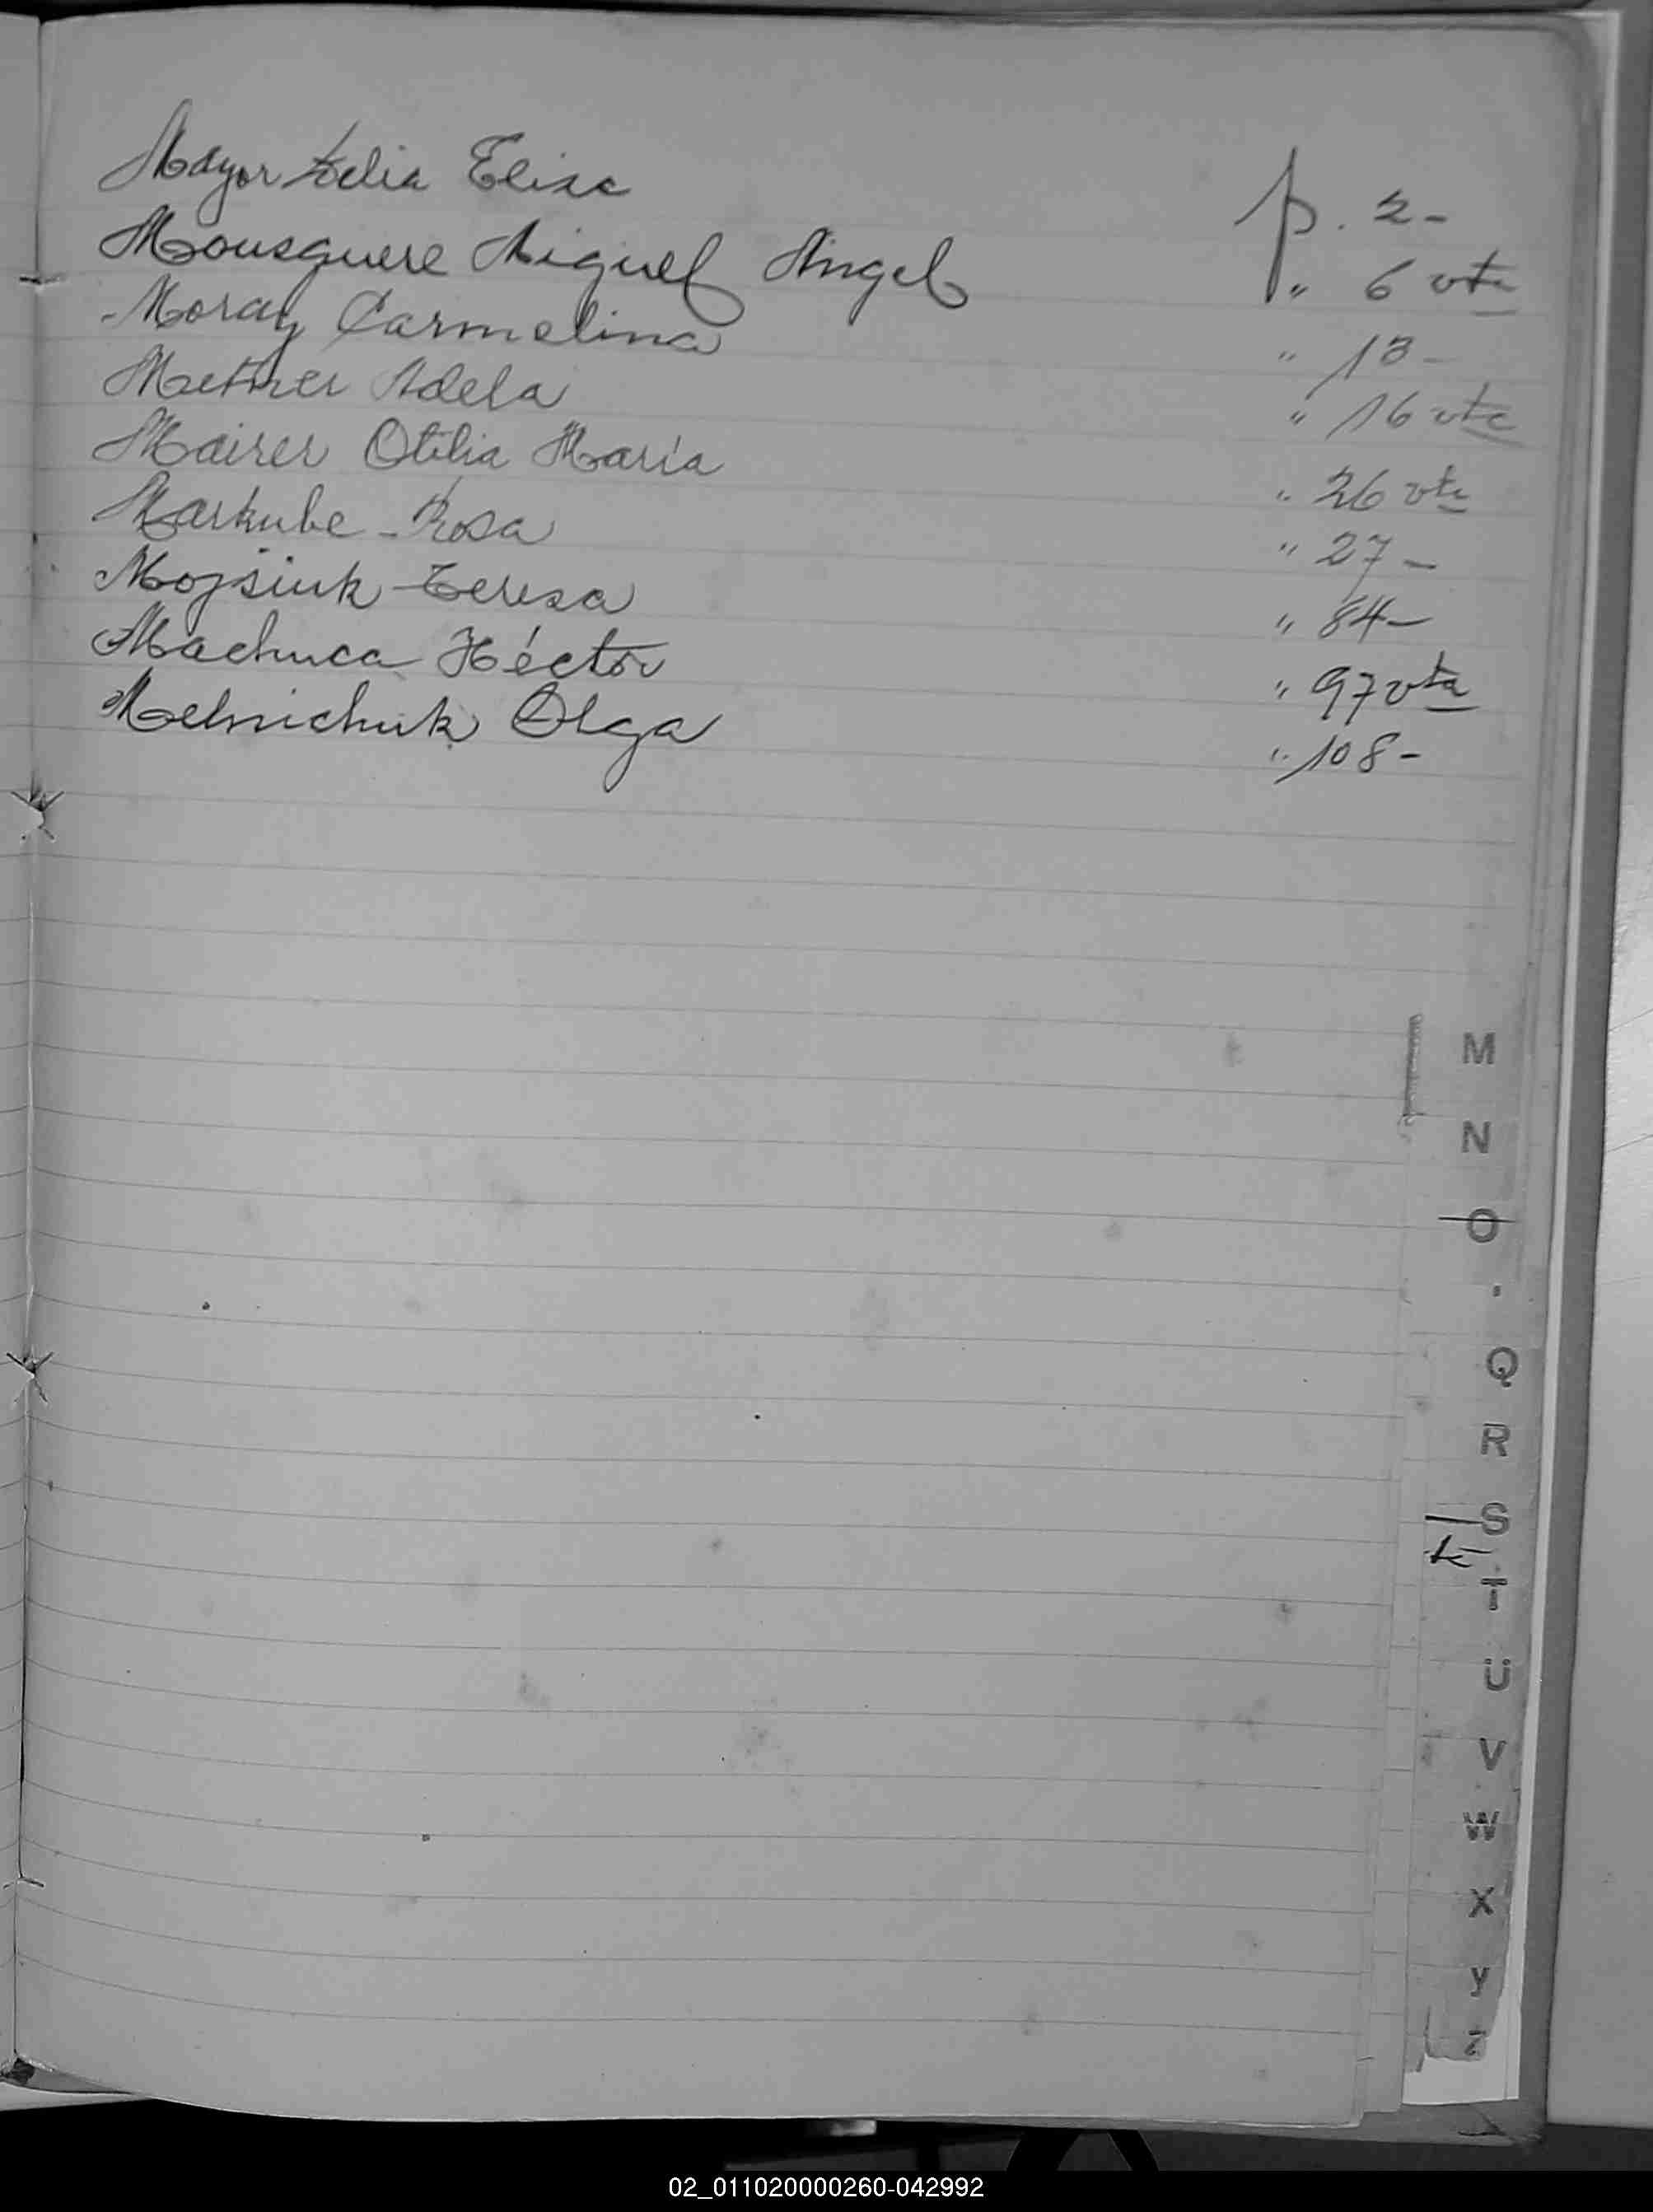 Mayor Delia Elisa p. 2-
Mousquere Miguel Angel " 6 vta
Moray Carmelina " 13-
Adela " 16 vta
Mairer Otilia María " 26 vta
Markube - Rosa " 27-
Mojsiuk Teresa " 84-
Machuca Héctor " 97 vta
Melnichuk Olga " 108-
M
N
O
Q
R
S
T
U
V
W
X
Y
Z
02_011020000260-042992